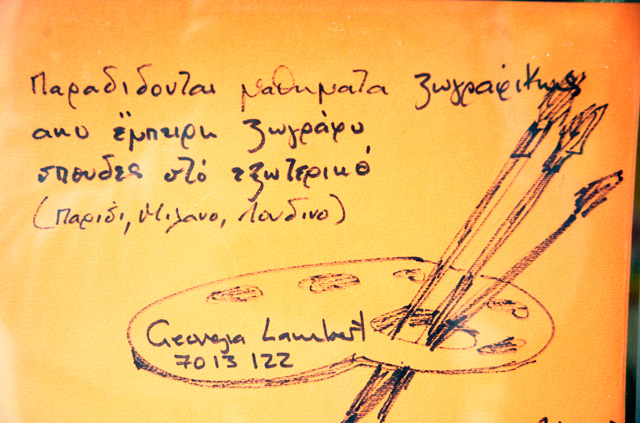 Παραδιδονται μαθηματα ζωγραφικης
απο έμπειρη ζωγράφο
σπουδες στό εξωτερικό
(Παρισι, Μιλανο, Λονδινο)
Georgia Lambert
7013 122